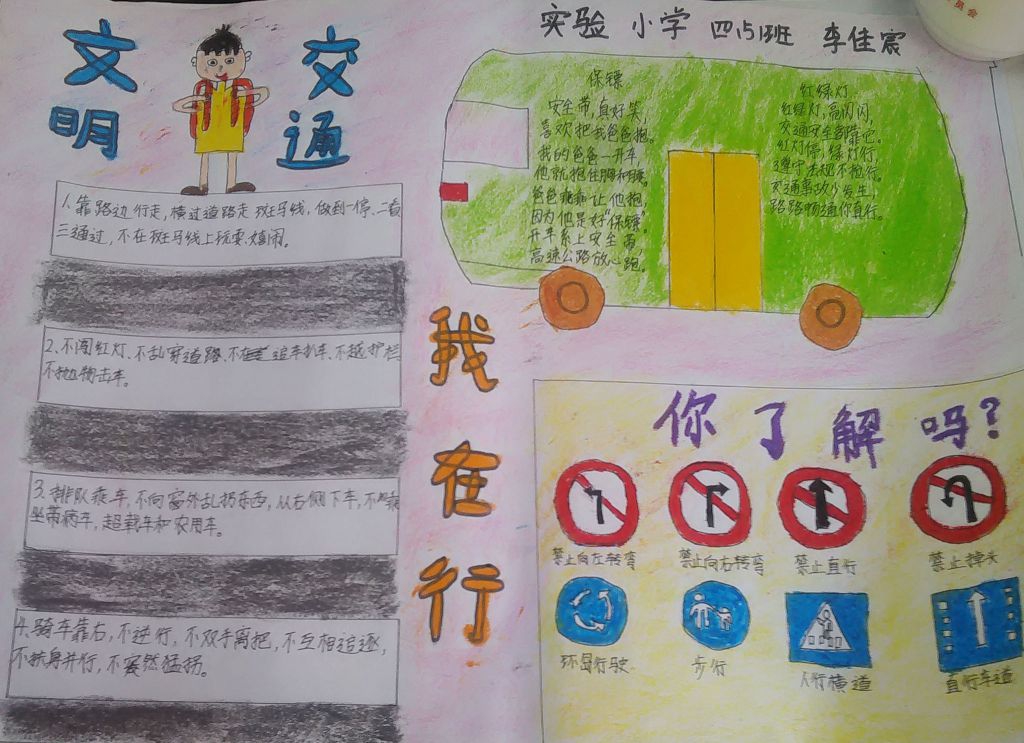 文明
交通
实验 小学 四(5)班 李佳宸
1、靠路边行走,横过道路走斑马线,做到一停、二看
三通过,不在斑马线上玩耍、嬉闹。
2、不闯红灯、不乱穿道路、不追车扒车、不越护栏
不抛物击车。
3、排队乘车,不向窗外乱扔东西,从右侧下车,不乘
坐带病车,超载车和农用车。
4、骑车靠右,不逆行,不双手离把,不互相追逐,
不扶身并行,不突然猛拐。
我在行
保镖
安全带,真好笑,
喜欢把我爸爸抱。
我的爸爸一开车,
他就抱住胸和腰。
爸爸乖乖让他抱,
因为他是好"保镖"
开车系上安全带
高速公路放心跑。
红绿灯
红绿灯,高闪闪,
交通安全都靠它。
红灯停,绿灯行,
遵守法规不抢行。
交通事故少发生,
路路畅通你直行。
你了解吗?
禁止向左转弯 禁止向右转弯 禁止直行 禁止掉头
环岛行驶 步行 人行横道 直行车道